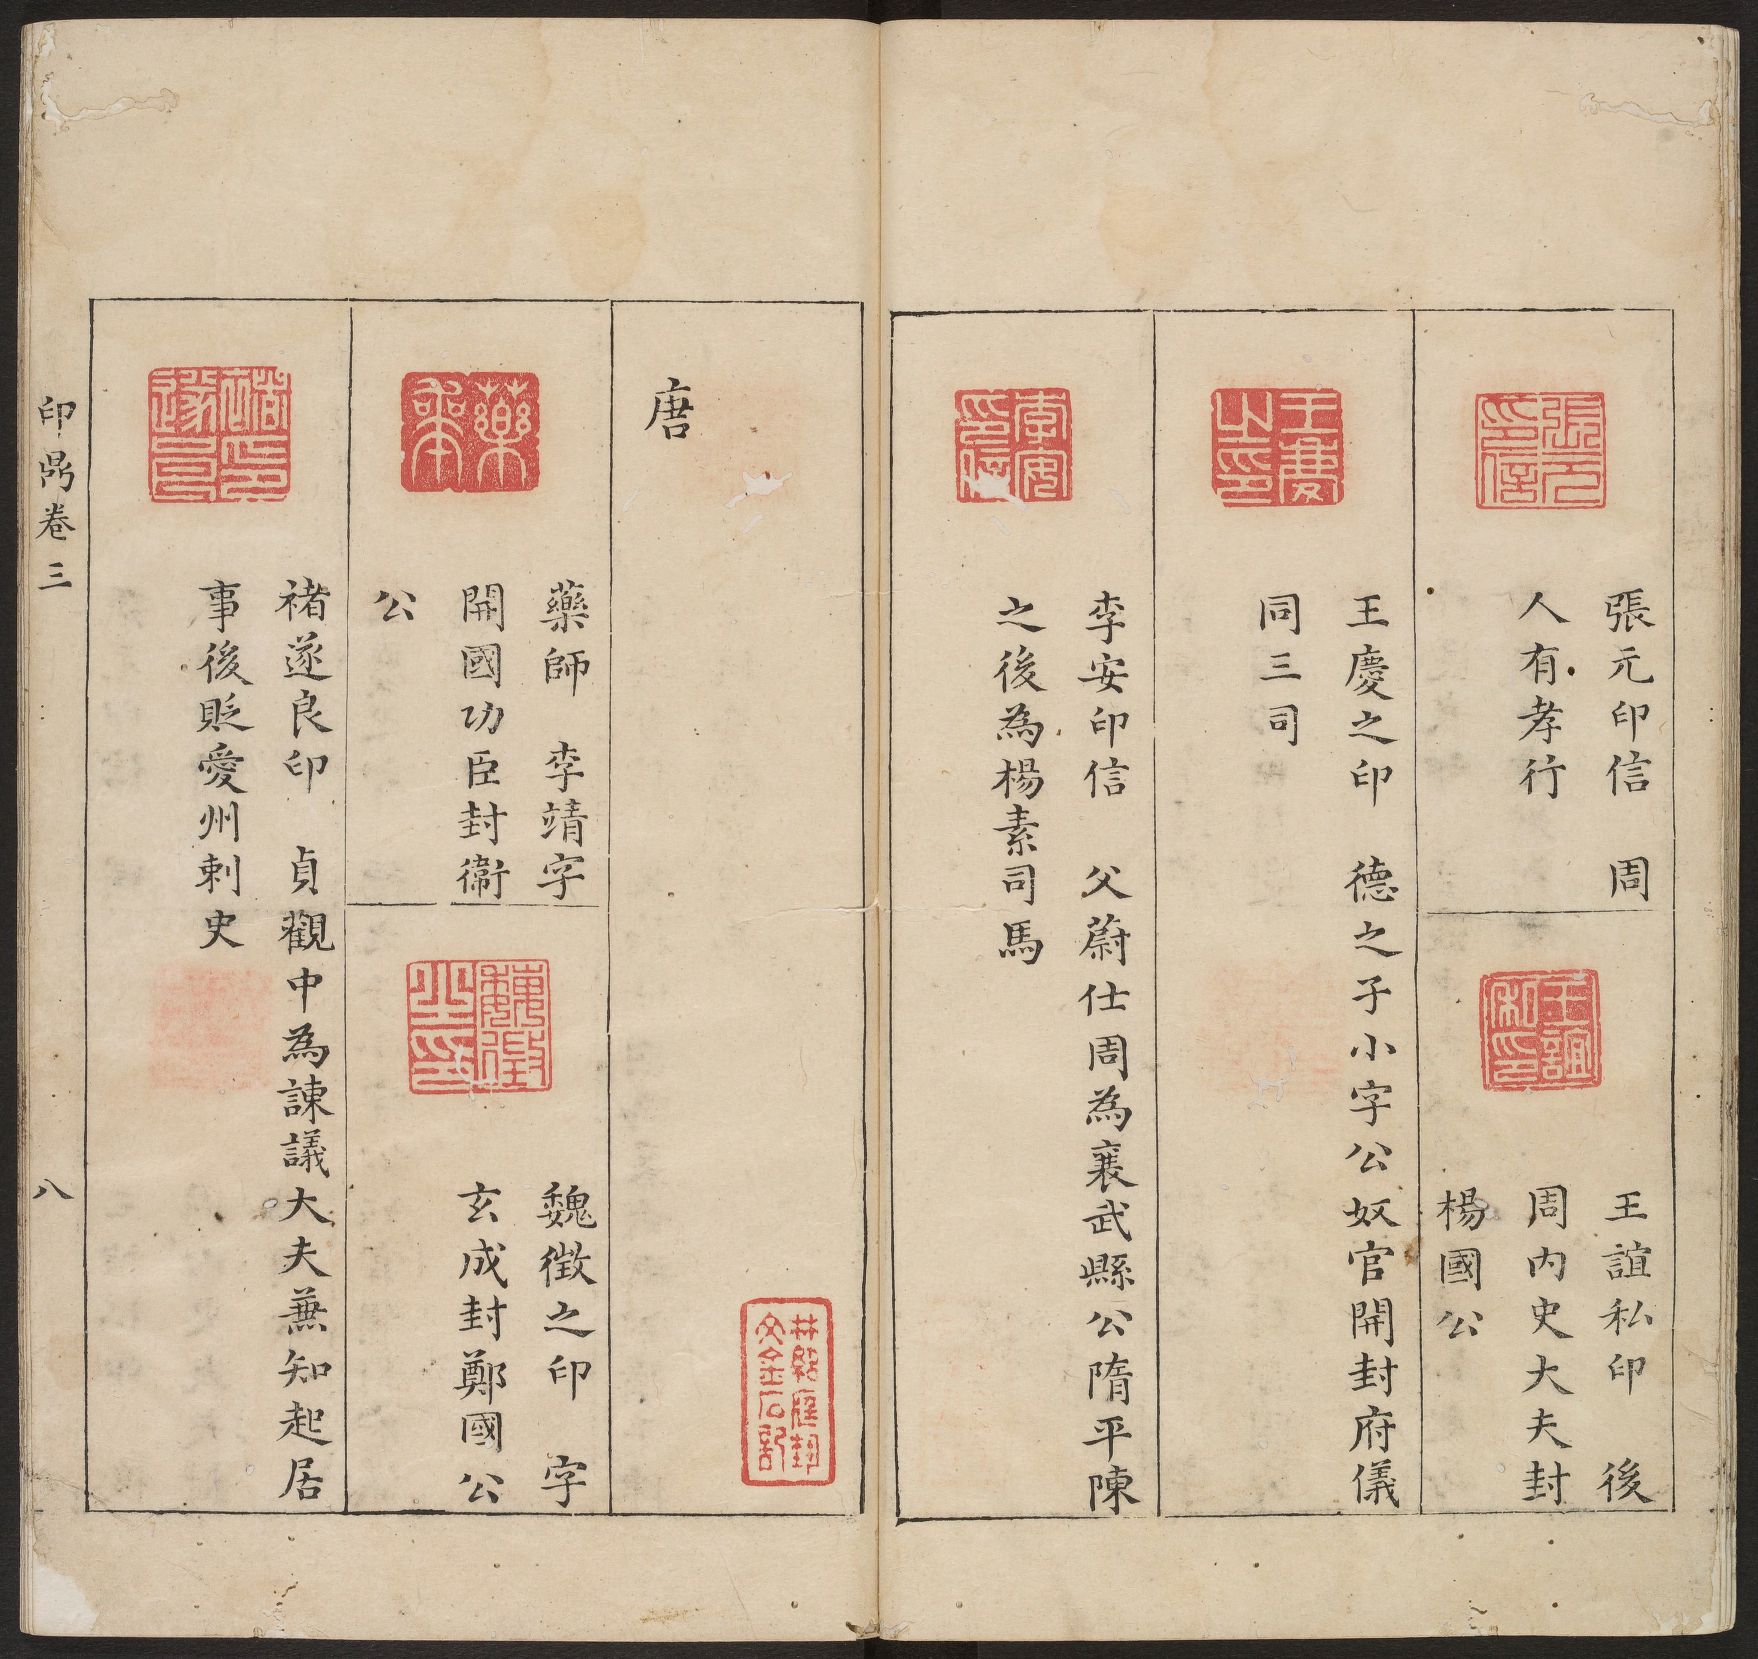 張元印信
張元印信　周
人有孝行
王誼私印
王誼私印　後
周內史大夫封
楊國公
王慶之印
王慶之印　德之子小字公奴官開封府儀
同三司
李安印信
李安印信　父蔚仕周為襄武縣公隋平陳
之後為楊素司馬
唐
藥師
藥師　李靖字
開國功臣封衞
公
魏徵之印
魏徵之印　字
玄成封鄭國公
褚遂良印
褚遂良印　貞觀中為諫議大夫兼知起居
事後貶愛州刺史
印鼎卷三
八